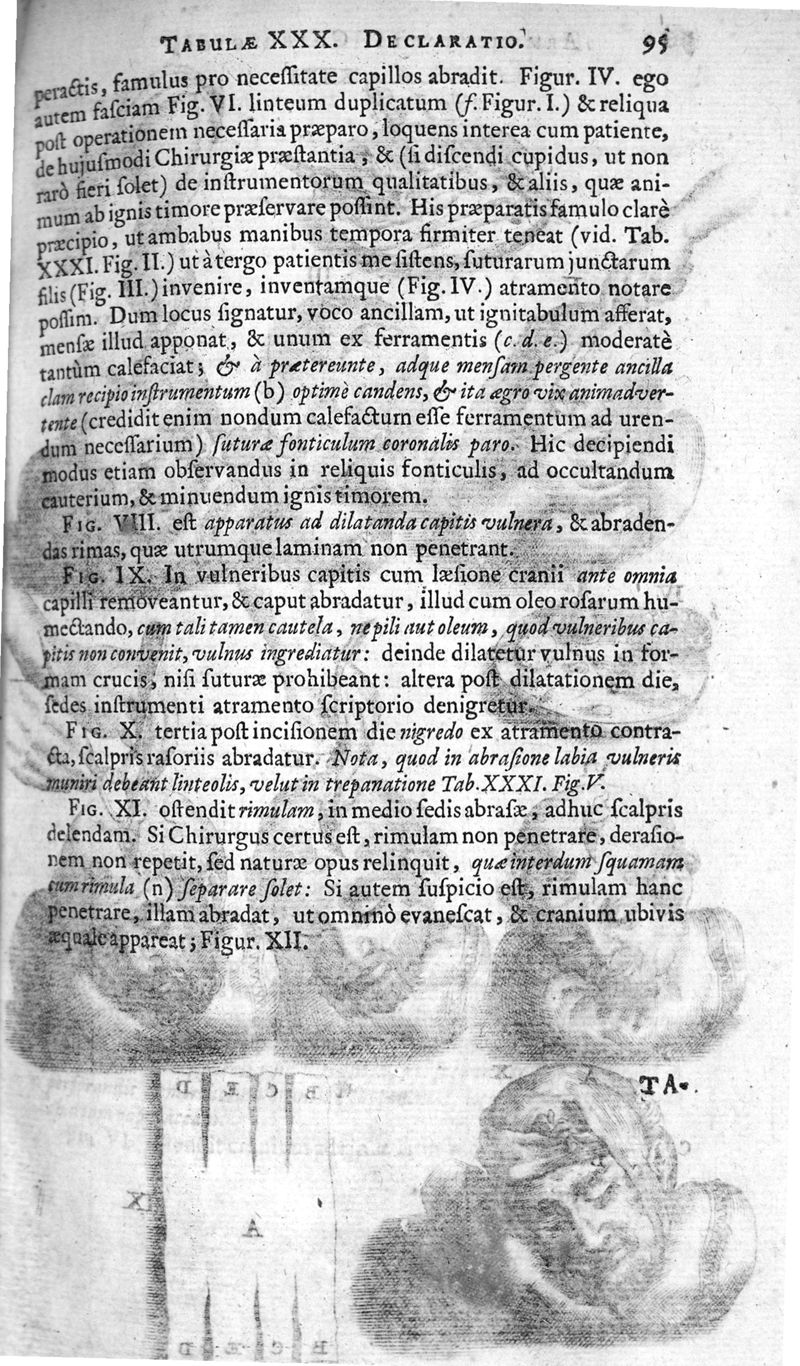 TABULÆ XXX. DECLARATIO. 95
peractis, famulus pro neceſſitate capillos abradit. Figur. IV. ego
autem faſciam Fig. VI. linteum duplicatum (f. Figur. I.) & reliqua
poſt operationem neceſſaria præparo, loquens interea cum patiente,
de hujuſmodi Chirurgiæ præſtantia, & (ſi diſcendi cupidus, ut non
rarò fieri ſolet) de inſtrumentorum qualitatibus, & aliis, quæ ani-
mum ab ignis timore præſervare poſſint. His præparatis famulo clarè
præcipio, ut ambabus manibus tempora firmiter teneat (vid. Tab.
XXXI. Fig. II.) ut à tergo patientis me ſiſtens, ſuturarum junctarum
filis (Fig. III.) invenire, inventamque (Fig. IV.) atramento notare
poſſim. Dum locus ſignatur, voco ancillam, ut ignitabulum afferat,
menſæ illud apponat, & unum ex ferramentis (c. d. e.) moderatè
tantùm calefaciat; & à prætereunte, adque menſam pergente ancilla
clam recipio inſtrumentum (b) optimè candens, & ita ægro vix animadver-
tente (credidit enim nondum calefactum eſſe ferramentum ad uren-
dum neceſſarium) ſuturæ fonticulum coronalis paro. Hic decipiendi
modus etiam obſervandus in reliquis fonticulis, ad occultandum
cauterium, & minuendum ignis timorem.
FIG. VIII. eſt apparatus ad dilatanda capitis vulnera, & abraden-
das rimas, quæ utrumque laminam non penetrant.
FIG. IX. In vulneribus capitis cum læſione cranii ante omnia
capilli removeantur, & caput abradatur, illud cum oleo roſarum hu-
mectando, cum tali tamen cautela, ne pili aut oleum, quod vulneribus ca-
pitis non convenit, vulnus ingrediatur: deinde dilatetur vulnus in for-
mam crucis, niſi ſuturæ prohibeant: altera poſt dilatationem die,
ſedes inſtrumenti atramento ſcriptorio denigretur.
FIG. X. tertia poſt inciſionem die nigredo ex atramento contra-
cta, ſcalpris raſoriis abradatur. Nota, quod in abraſione labia vulneris
muniri debeant linteolis, velut in trepanatione Tab. XXXI. Fig. V.
FIG. XI. oſtendit rimulam, in medio ſedis abraſæ, adhuc ſcalpris
delendam. Si Chirurgus certus eſt, rimulam non penetrare, deraſio-
nem non repetit, ſed naturæ opus relinquit, quæ interdum ſquamam
cum rimula (n) ſeparare ſolet: Si autem ſuſpicio eſt, rimulam hanc
penetrare, illam abradat, ut omninò evaneſcat, & cranium ubivis
æquale appareat; Figur. XII.
TA-